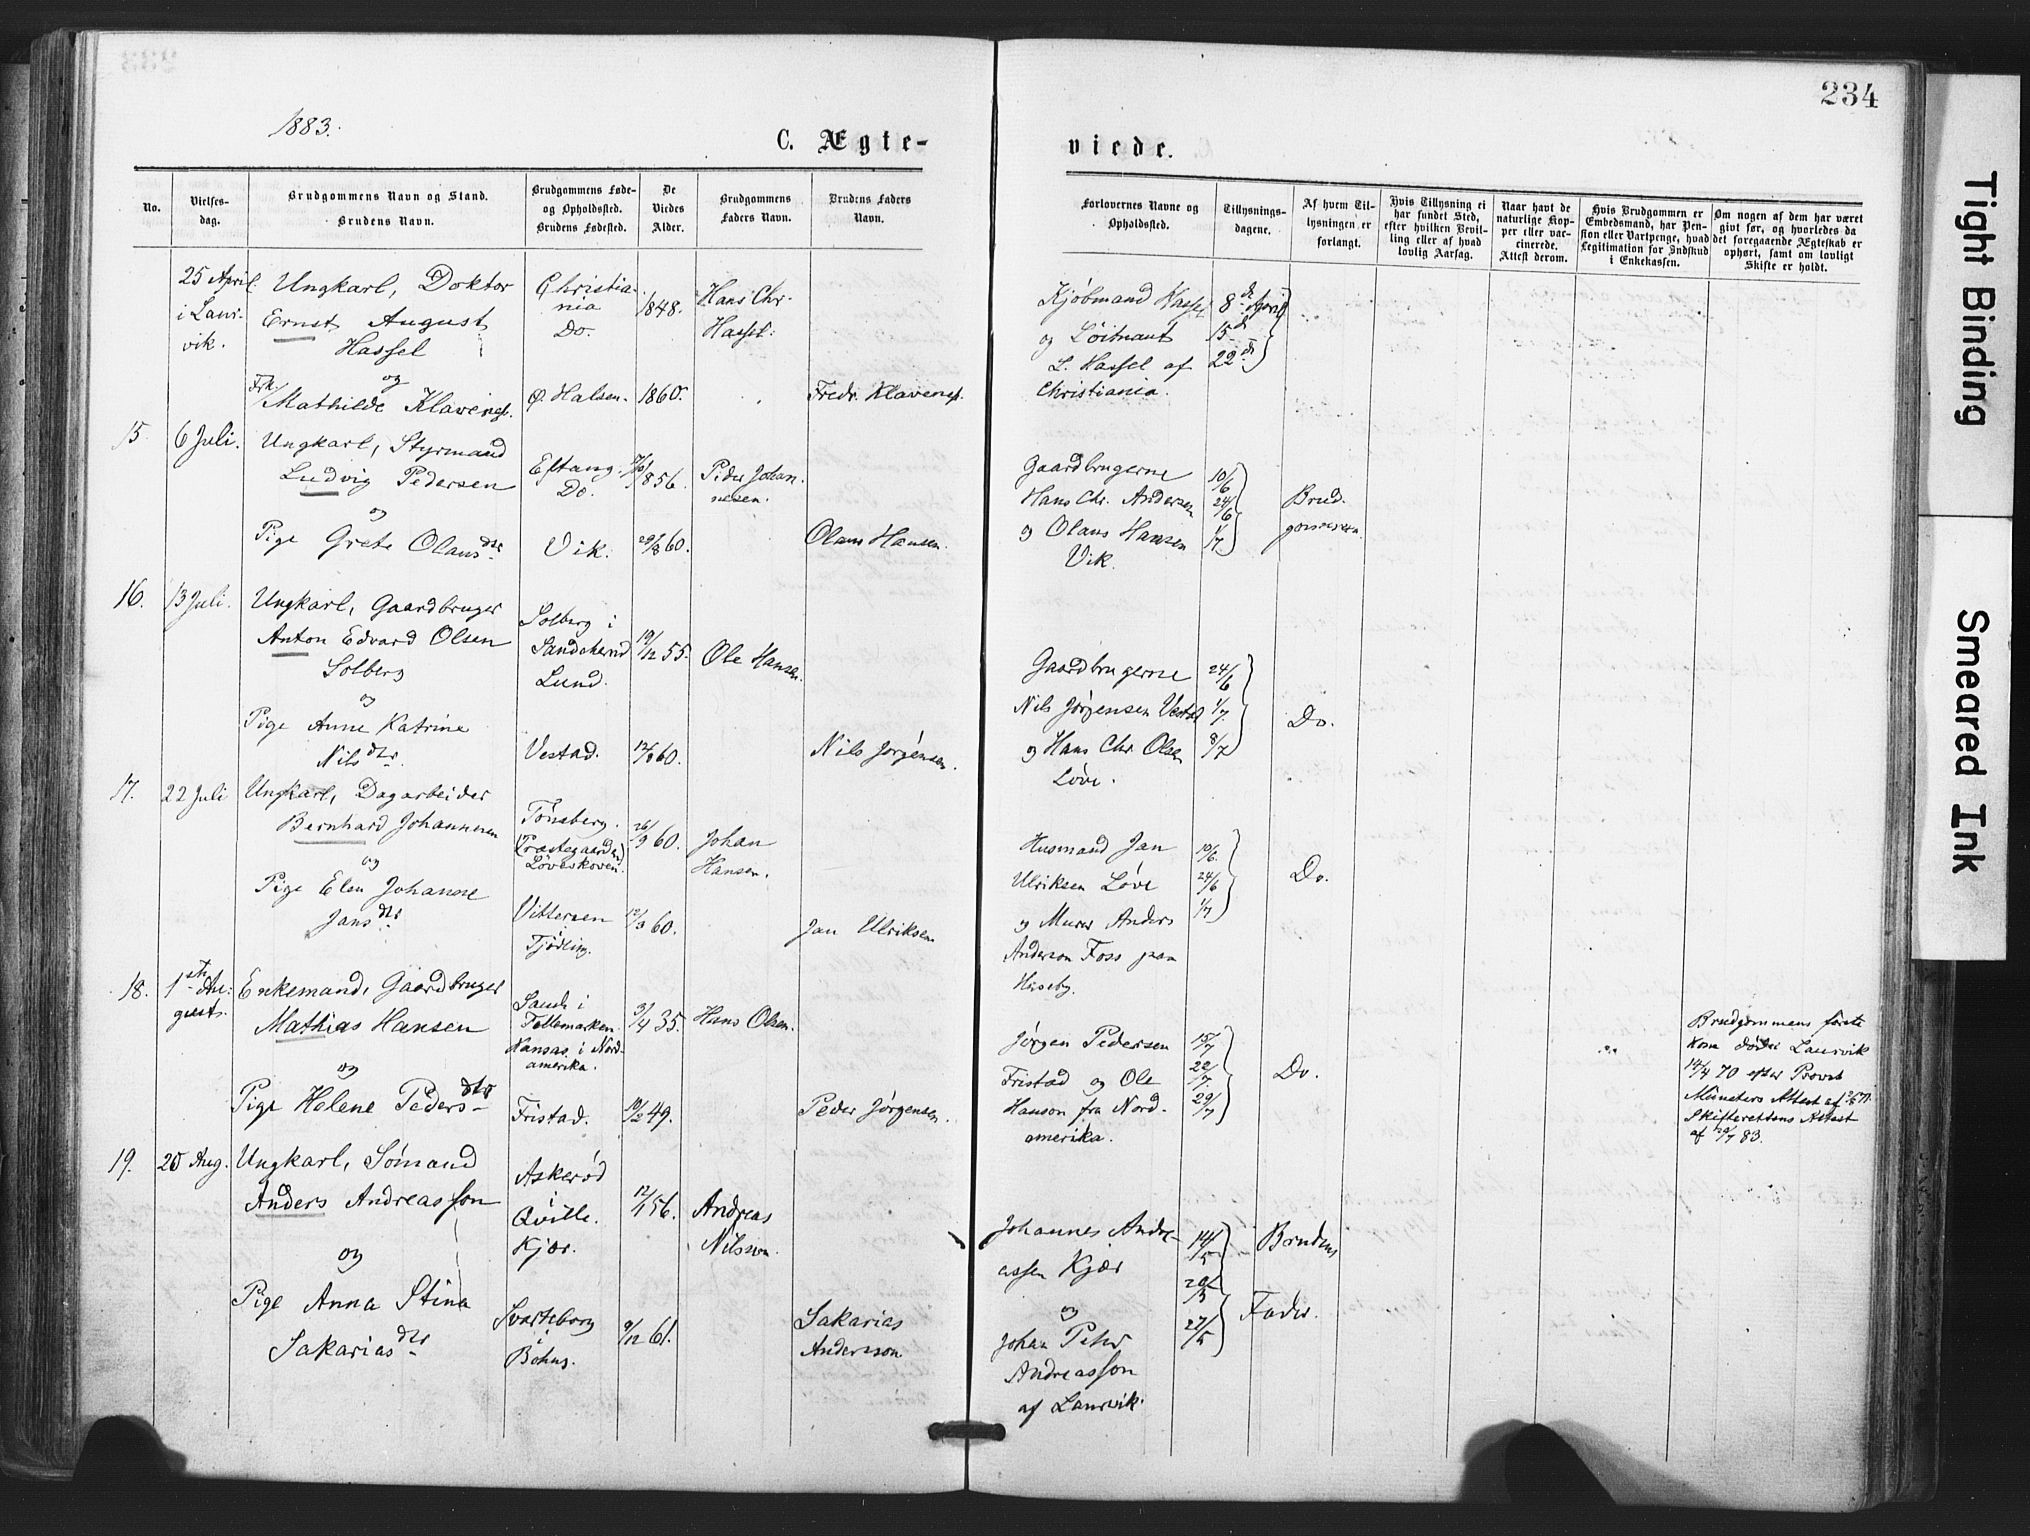 234
1883.
C. Ægte-
viede.
No.
Vielses-
dag.
Brudgommens Navn og Stand.
Brudens Navn.
Brudgommens Føde-
og Opholdssted.
Brudens Fødested.
De
Viedes
Alder.
Brudgommens
Faders Navn.
Brudens Faders
Navn.
Forlovernes Navne og
Opholdssted.
Tillysnings-
dagene.
Af hvem Til-
lysningen er
forlangt.
Hvis Tillysning ei
har fundet Sted,
efter hvilken Bevil-
ling eller af hvad
lovlig Aarsag.
Naar havt de
naturlige Kop-
per eller vac-
cinerede.
Attest derom.
Hvis Brudgommen er
Embedsmand, har Pen-
sion eller Vartpenge, hvad
Legitimation for Indskud
i Enkekassen.
Om nogen af dem har været
givt før, og hvorledes da
det foregaaende Ægteskab er
ophørt, samt om lovligt
Skifte er holdt.
25 April
i Laur-
vik.
Ungkarl, Doktor
Ernst August
Hassel
og
Frk. Mathilde Klaveness.
Christia-
nia
Do.
Ø. Halsen.
1848.
1860.
Hans Chr.
Hassel.
Fredr. Klaveness.
Kjøbmand Hassel
og Løitnant
L. Hassel af
Christiania.
8de April
15de
22de
15.
6 Juli.
Ungkarl, Styrmand
Ludvig Pedersen
og
Pige Grete Olausdtr
Eftang.
Do.
Vik.
1856.
29/8 60.
Peder Johan-
nesen.
Olaus Hansen.
Gaardbrugerne
Hans Chr. Andersen
og Olaus Hansen
Vik.
10/6
24/6
1/7
Brud-
gommen.
16.
13 Juli.
Ungkarl, Gaardbruger
Anton Edvard Olsen
Solberg
og
Pige Anne Katrine
Nilsdtr.
Solberg i
Sandeherred
Lund.
Vestad.
19/12 55.
60.
Ole Hansen.
Nils Jørgensen.
Gaardbrugerne
Nils Jørgensen Vestad
og Hans Chr. Olsen
Løve.
24/6
1/7
8/7
Do.
17.
22 Juli
Ungkarl, Dagarbeider
Bernhard Johannesen
og
Pige Elen Johanne
Jansdtr.
Tønsberg.
(Præstegaarden)
Løveskoven.
Vittersen
Tjødling.
26/9 60.
12/3 60.
Johan
Hansen.
Jan Ulriksen
Husmand Jan
Ulriksen Løve
og Murer Anders
Anderson Foss paa
Huseby.
10/6
24/6
1/7
Do.
18.
1ste Au-
gust.
Enkemand, Gaardbruger
Mathias Hansen
og
Pige Helene Pedersdtr
Sande i
Tellemarken.
Kansas i Nord-
amerika.
Fristad.
3/4 35.
19/2 49.
Hans Olsen.
Peder Jørgensen.
Jørgen Pedersen
Fristad og Ole
Hanson fra Nord-
amerika.
15/7
22/7
29/7
Do.
Brudgommens første
Kone døde i Laurvik
14/4 70 efter Provst
Münsters Attest af
Skifterettens Attest
af 83.
19.
25 Aug.
Ungkarl, Sømand
Anders Andreasson
og
Pige Anna Stina
Sakariasdtr
Askerød
i
Qville.
Kjær.
Svarteborg
i
Bohus.
12/1 56.
9/12 61.
Andreas
Nilsson.
Sakarias
Andersson
Johannes Andre-
assen Kjær
og
Johan Peter
Andreasson
af Laurvik.
14/5
20/5
27/5
Brudens
Fader.
Tight Binding
Smeared Ink